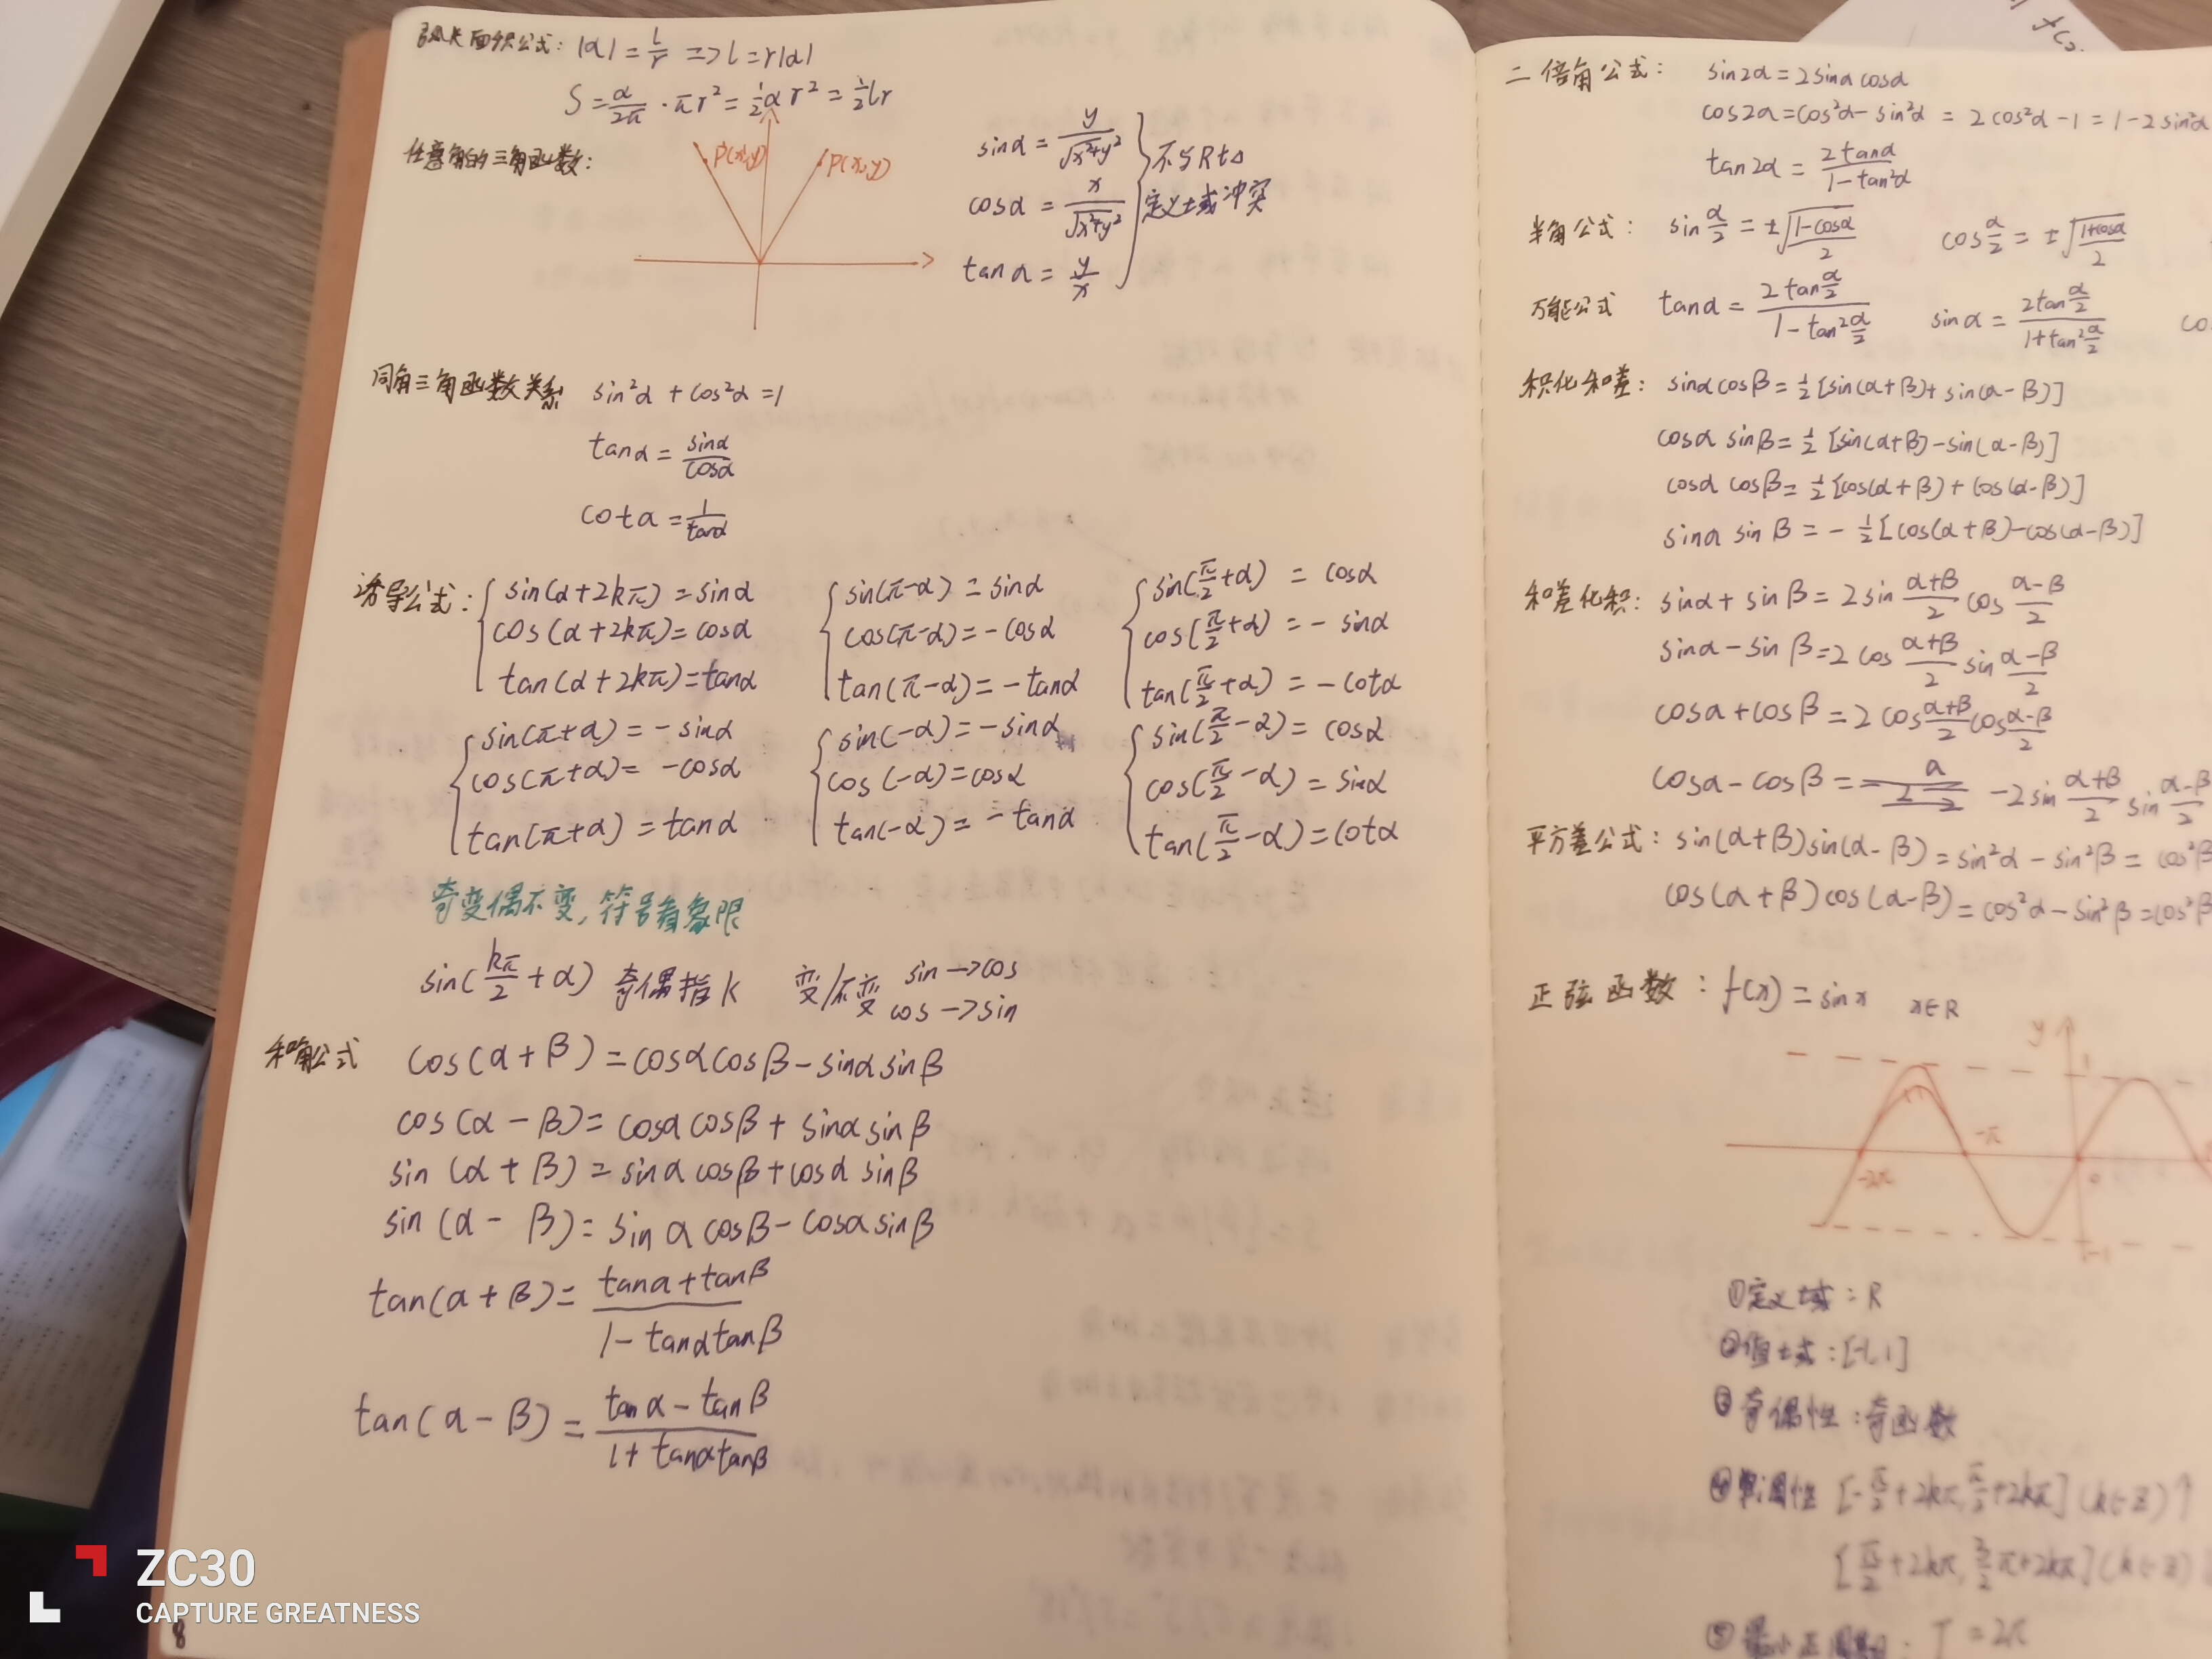 弧长面积公式: |α| = l/r => l = r|α|
S = α/2π · πr² = 1/2 αr² = 1/2 lr
任意角的三角函数:
P(x,y) P(x,y)
sinα = y/√x²+y²
cosα = x/√x²+y²
tanα = y/x
不与Rt△
定义域冲突
同角三角函数关系 sin²α + cos²α = 1
tanα = sinα/cosα
cotα = 1/tanα
诱导公式: sin(α+2kπ) = sinα
cos(α+2kπ) = cosα
tan(α+2kπ) = tanα
sin(π-α) = sinα
cos(π-α) = -cosα
tan(π-α) = -tanα
sin(π/2+α) = cosα
cos(π/2+α) = -sinα
tan(π/2+α) = -cotα
sin(π+α) = -sinα
cos(π+α) = -cosα
tan(π+α) = tanα
sin(-α) = -sinα
cos(-α) = cosα
tan(-α) = -tanα
sin(π/2-α) = cosα
cos(π/2-α) = sinα
tan(π/2-α) = cotα
奇变偶不变, 符号看象限
sin(kπ/2+α) 奇偶指k 变/不变 sin→cos
cos→sin
和角公式 cos(α+β) = cosαcosβ-sinαsinβ
cos(α-β) = cosαcosβ+sinαsinβ
sin(α+β) = sinαcosβ+cosαsinβ
sin(α-β) = sinαcosβ-cosαsinβ
tan(α+β) = tanα+tanβ/1-tanαtanβ
tan(α-β) = tanα-tanβ/1+tanαtanβ
8
二倍角公式: sin2α = 2sinαcosα
cos2α = cos²α-sin²α = 2cos²α-1 = 1-2sin²α
tan2α = 2tanα/1-tan²α
半角公式: sin α/2 = ±√1-cosα/2 cos α/2 = ±√1+cosα/2
万能公式 tanα = 2tan α/2 / 1-tan² α/2 sinα = 2tan α/2 / 1+tan² α/2 co
积化和差: sinαcosβ = 1/2[sin(α+β)+sin(α-β)]
cosαsinβ = 1/2[sin(α+β)-sin(α-β)]
cosαcosβ = 1/2[cos(α+β)+cos(α-β)]
sinαsinβ = -1/2[cos(α+β)-cos(α-β)]
和差化积: sinα+sinβ = 2sin α+β/2 cos α-β/2
sinα-sinβ = 2cos α+β/2 sin α-β/2
cosα+cosβ = 2cos α+β/2 cos α-β/2
cosα-cosβ = -2sin α+β/2 sin α-β/2
平方差公式: sin(α+β)sin(α-β) = sin²α-sin²β = cos²β
cos(α+β)cos(α-β) = cos²α-sin²β = cos²β
正弦函数: f(x) = sinx x∈R
y
1
-2π -π 0
-1
①定义域: R
②值域: [-1,1]
③奇偶性: 奇函数
④单调性 [-π/2+2kπ, π/2+2kπ](k∈Z)↑
[π/2+2kπ, 3/2π+2kπ](k∈Z)
⑤最小正周期: T = 2π
ZC30
CAPTURE GREATNESS